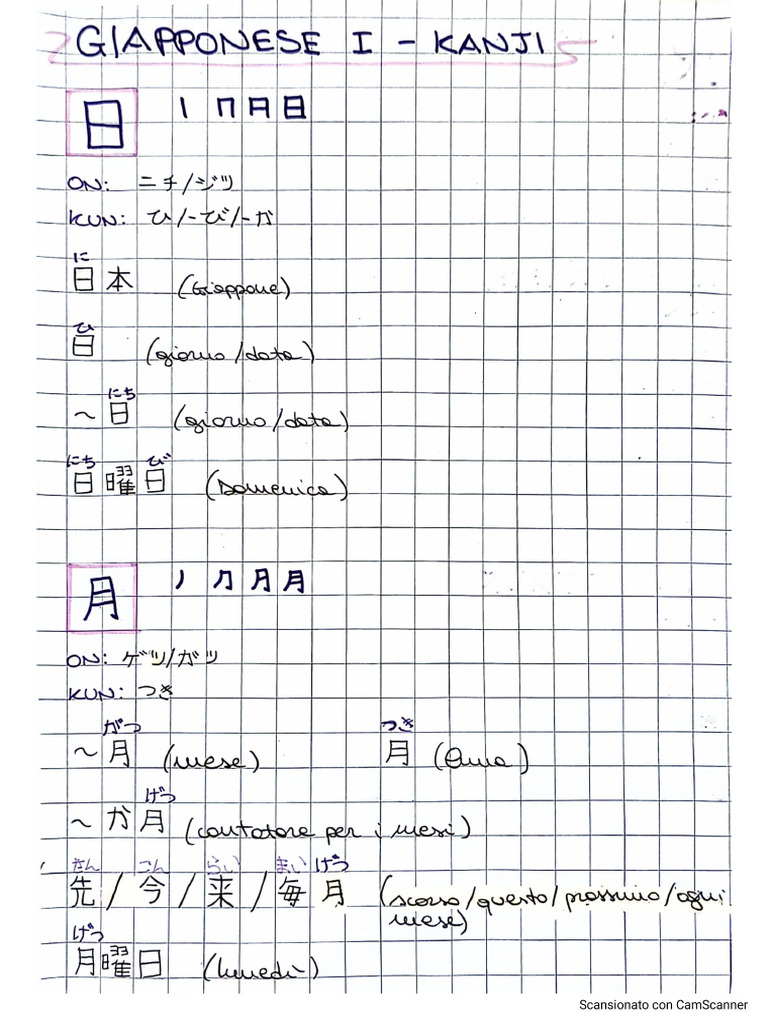 GIAPPONESE I - KANJI
日 丨 冂 月 日
ON: ニチ/ジツ
KUN: ひ/-び/-か
に
日本 (Giappone)
ひ
日 (giorno/data)
にち
~日 (giorno/data)
にち び
日曜日 (Domenica)
月 丿 ⺆ 月 月
ON: ゲツ/ガツ
KUN: つき
がつ つき
~月 (mese) 月 (luna)
げつ
~か月 (contatore per i mesi)
せん こん らい まい げつ
先/今/来/毎月 (scorso/questo/prossimo/ogni
mese)
げつ
月曜日 (lunedì)
Scansionato con CamScanner